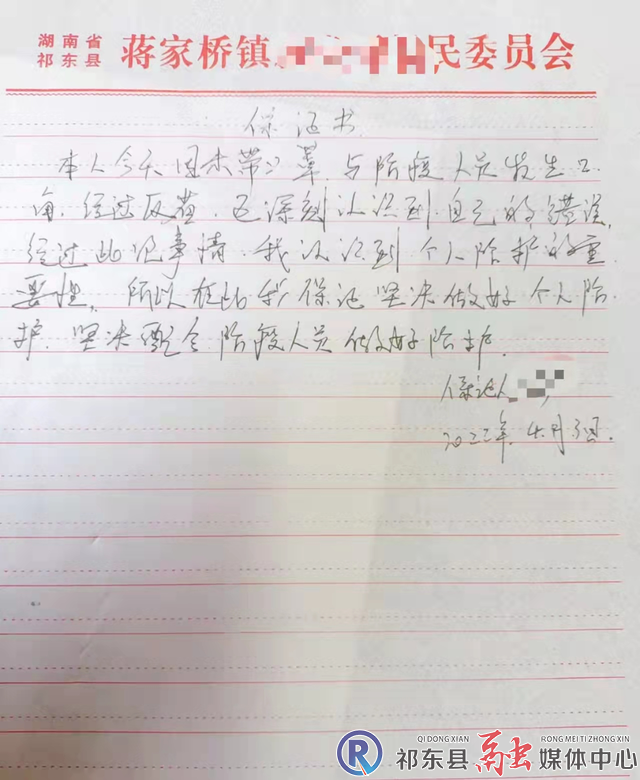 湖南省
祁东县
蒋家桥镇 民委员会
保证书
本人今天因未带口罩,与防疫人员发生口
角,经过反省,已深刻认识到自己的错误,
经过此次事情,我认识到个人防护的重
要性,所以在此我保证坚决做好个人防
护,坚决配合防疫人员做好防护。
保证人
2022年4月3日.
QI DONG XIAN RONG MEI TI ZHONG XIN
祁东县融媒体中心